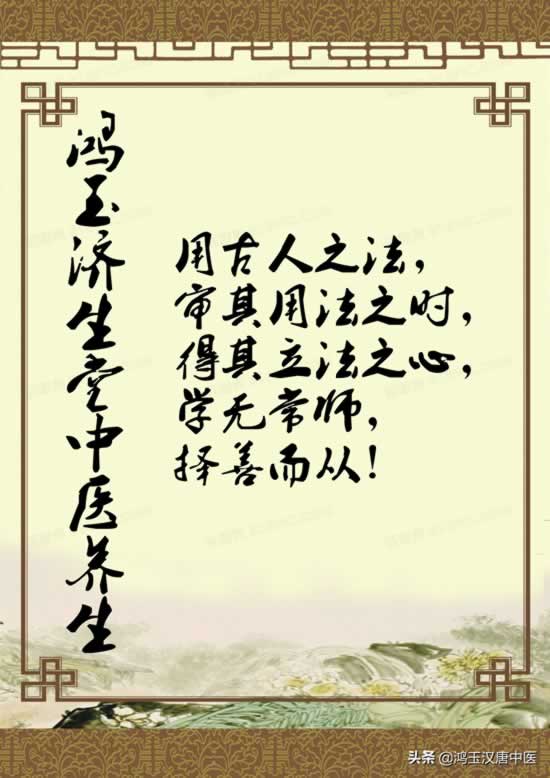 鸿玉济生堂中医养生
用古人之法，
审其用法之时，
得其立法之心，
学无常师，
择善而从！
头条 @鸿玉汉唐中医